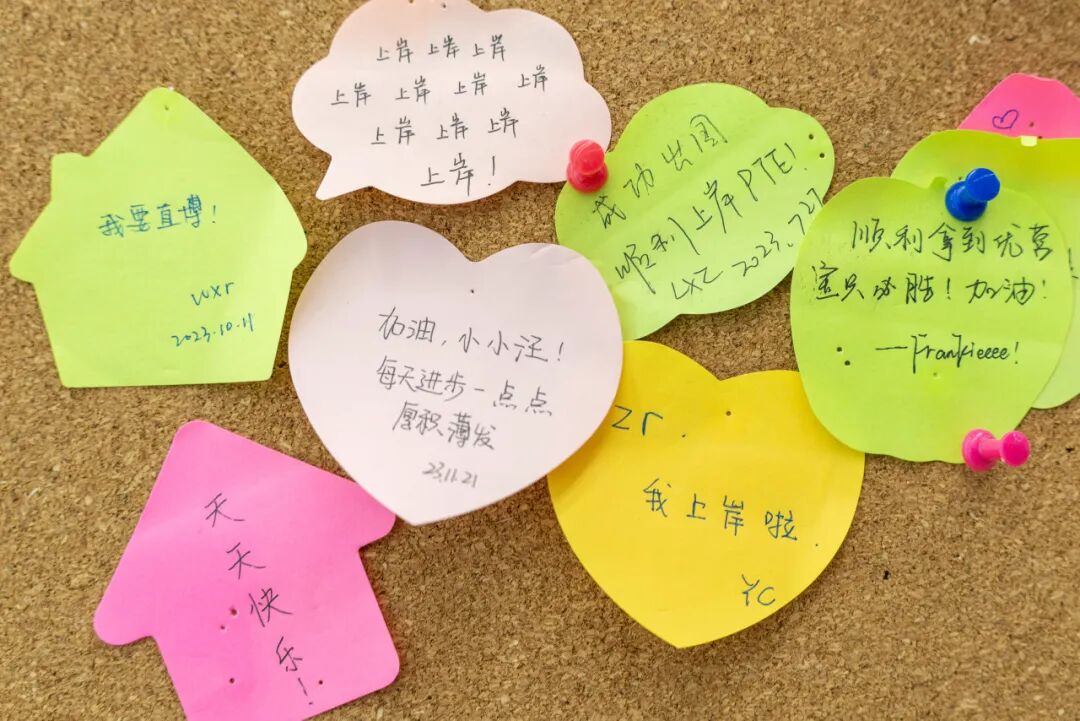 上岸 上岸 上岸
上岸 上岸 上岸 上岸
上岸 上岸 上岸
上岸!
我要直博!
wxr
2023.10.11
成功出国
顺利上岸PTE!
LXZ 2023.7.27
顺利拿到优营
必胜!加油!
—Frankieeee!
加油,小小泾!
每天进步一点点
厚积薄发
23.11.21
zr.
我上岸啦.
YC
天天快乐!